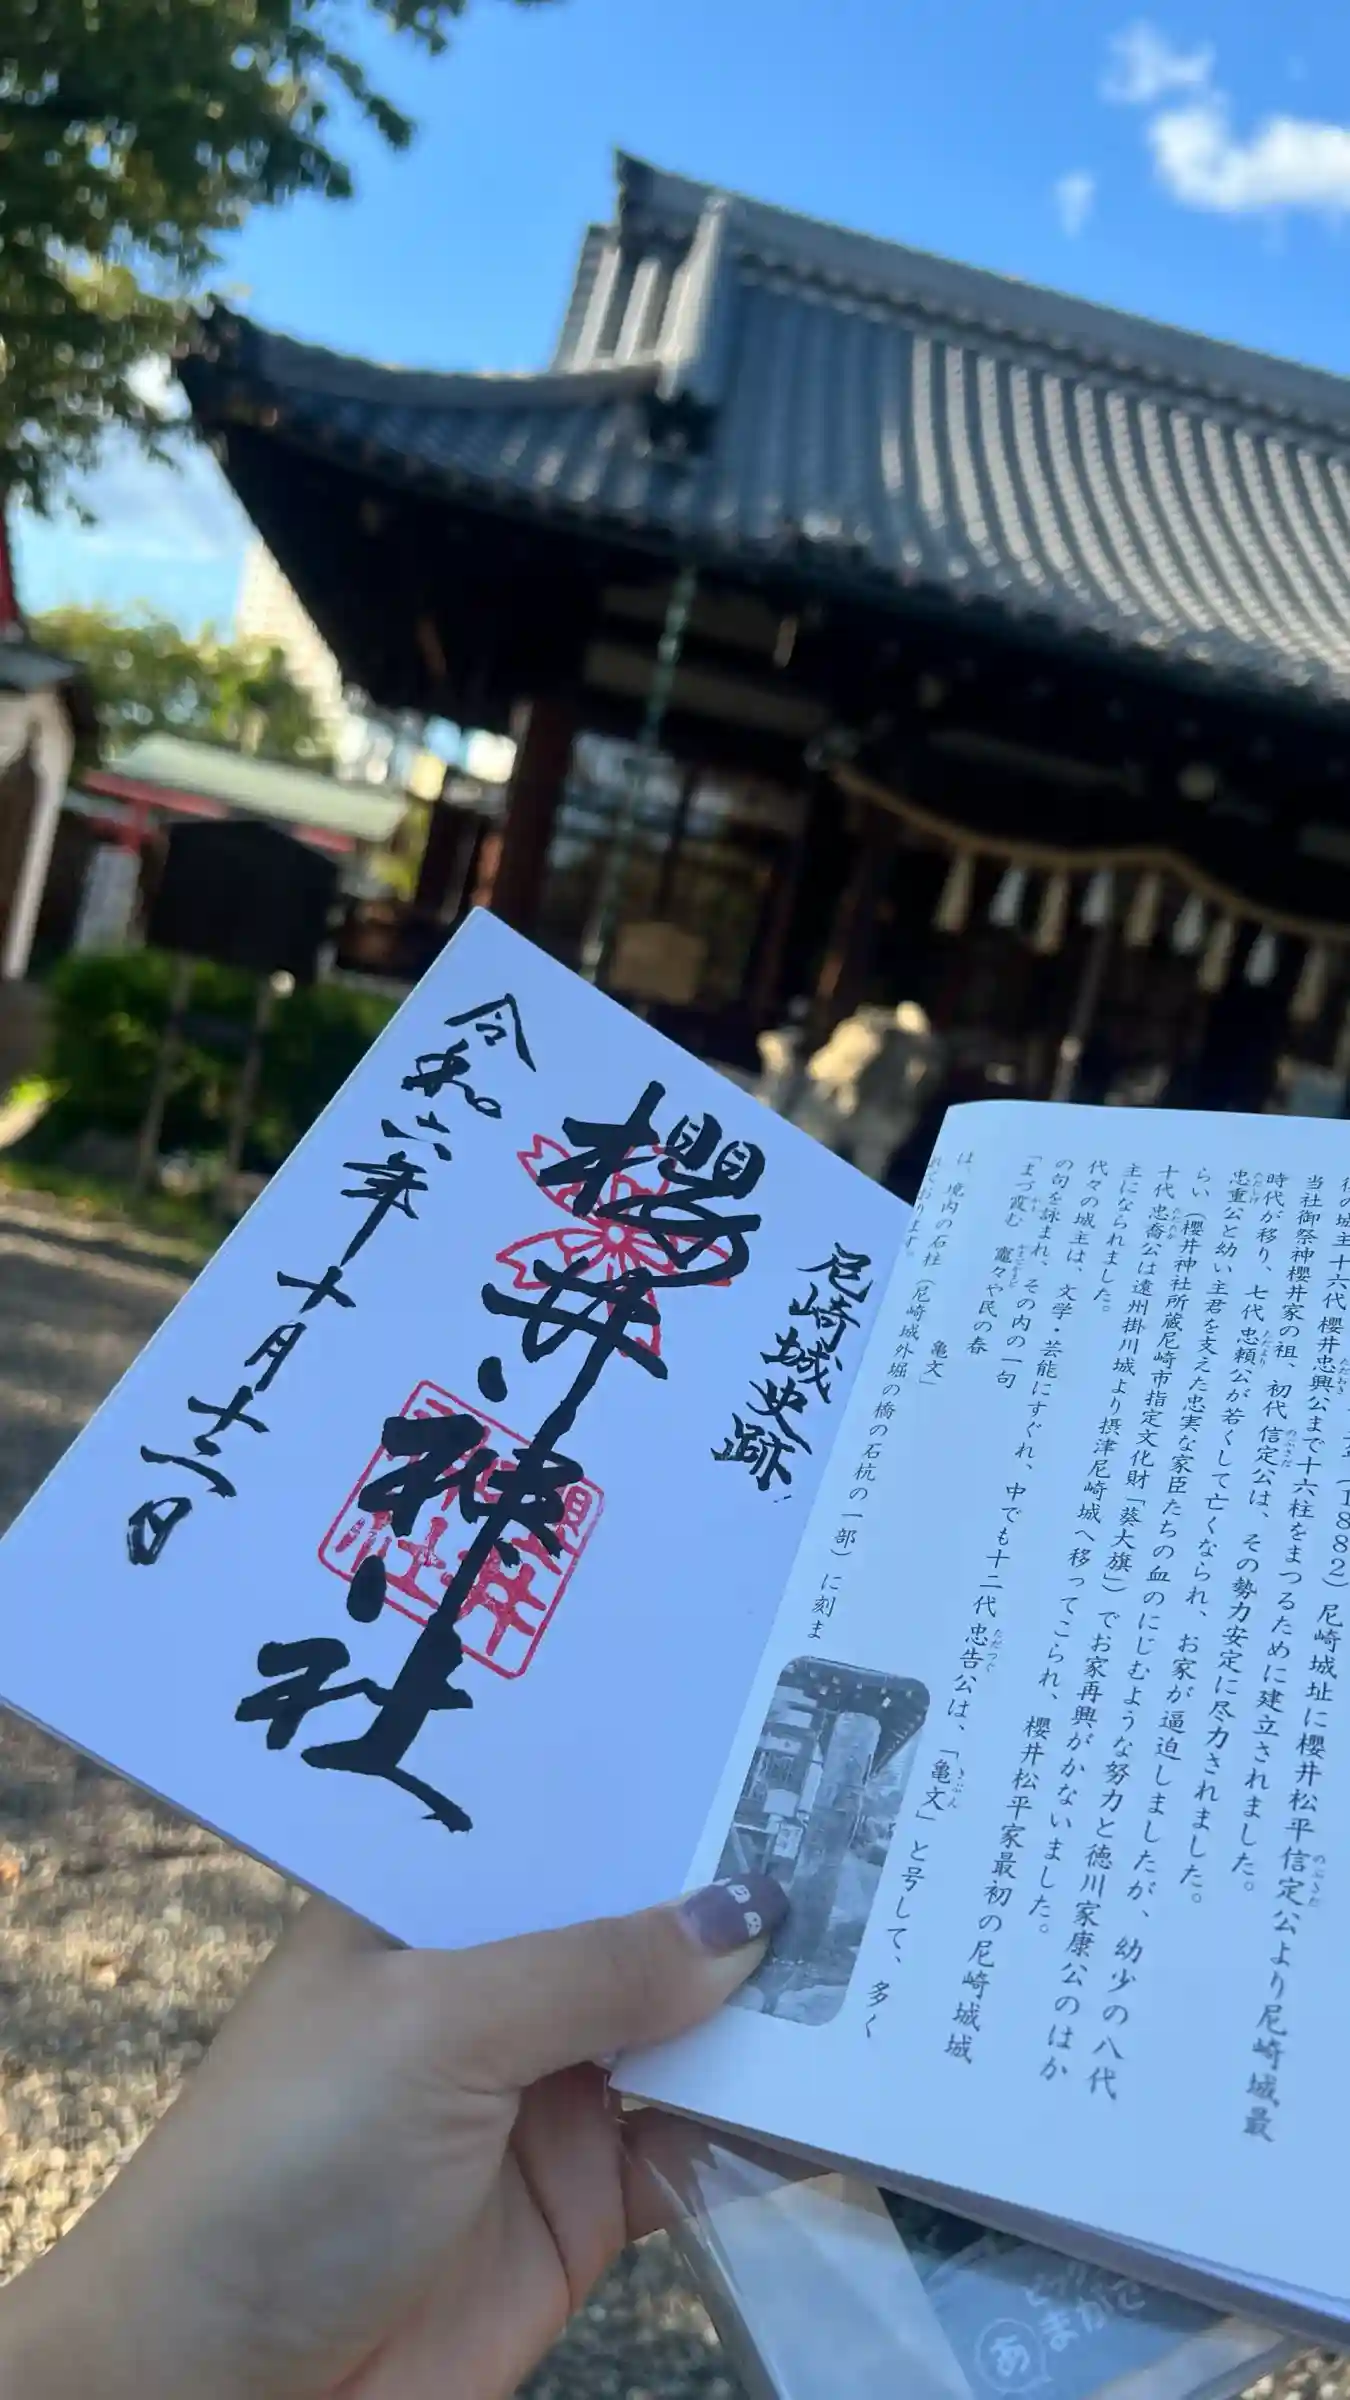 尼崎城史跡
櫻井神社
令和六年十月十二日
当社御祭神櫻井家の祖、初代信定公は、その勢力安定に尽力されました。
時代が移り、七代忠頼公が若くして亡くなられ、お家が逼迫しましたが、幼少の八代
忠重公と幼い主君を支えた忠実な家臣たちの血のにじむような努力と徳川家康公のはか
らい（櫻井神社所蔵尼崎市指定文化財「葵大旗」）でお家再興がかないました。
十代忠喬公は遠州掛川城より摂津尼崎城へ移ってこられ、櫻井松平家最初の尼崎城城
主になられました。
代々の城主は、文学・芸能にすぐれ、中でも十二代忠告公は、「亀文」と号して、多く
の句を詠まれ、その内の一句
「まづ霞む 竈々や民の春
亀文」
は、境内の石柱（尼崎城外堀の橋の石杭の一部）に刻ま
れております。
あ